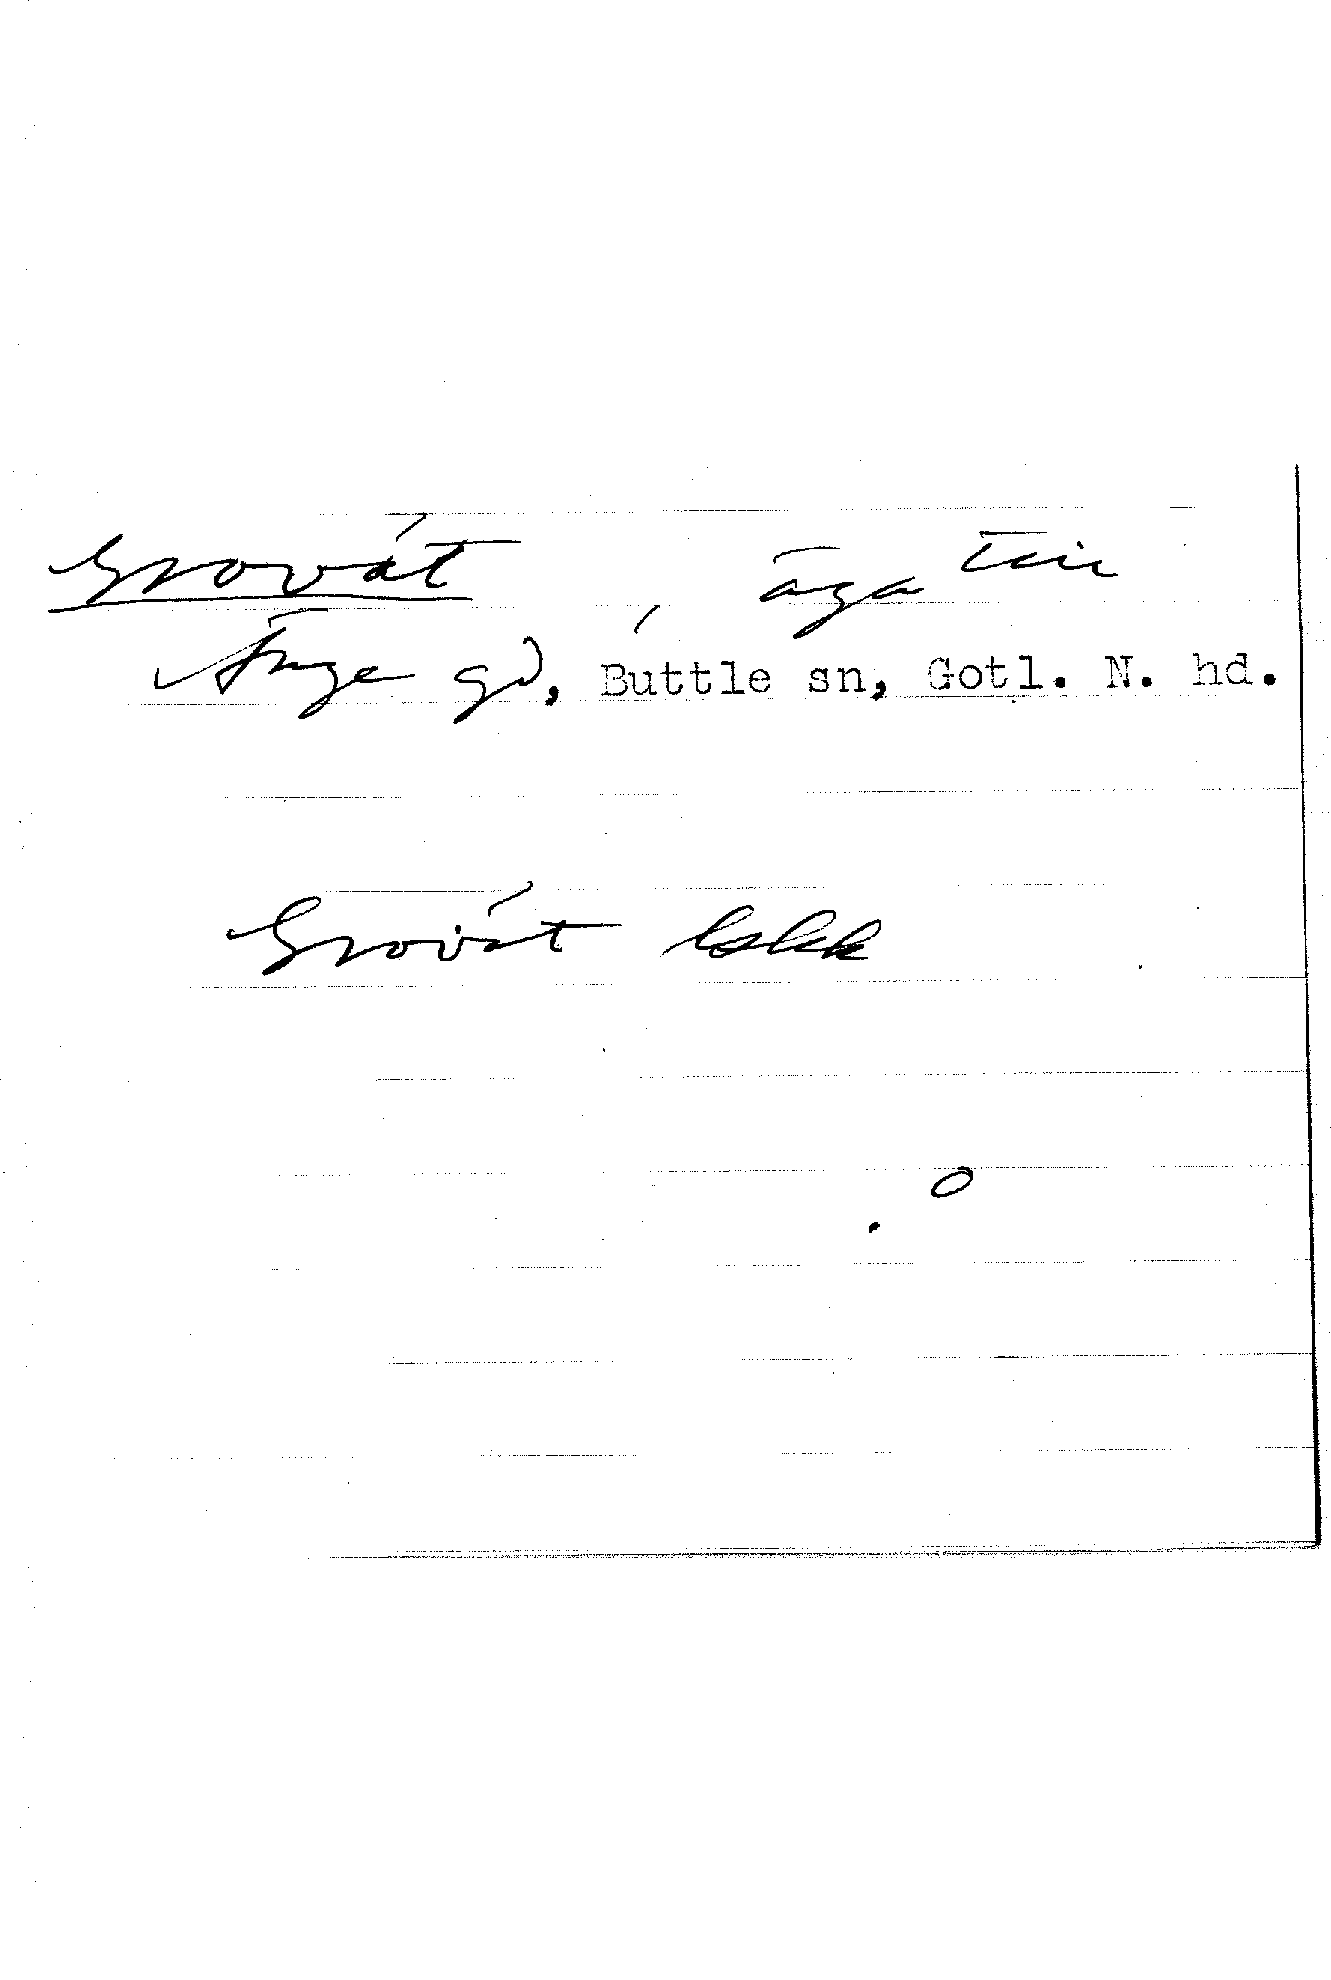 Grovát, äga
Änge gd, Buttle sn, Gotl. N. hd.
Grovát